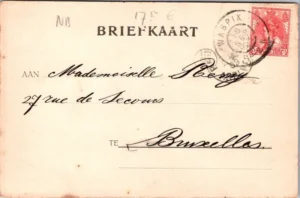 NB 1756
BRIEFKAART
WASPIK
AAN Mademoiselle Remy
27 rue de Secours
TE Bruxelles